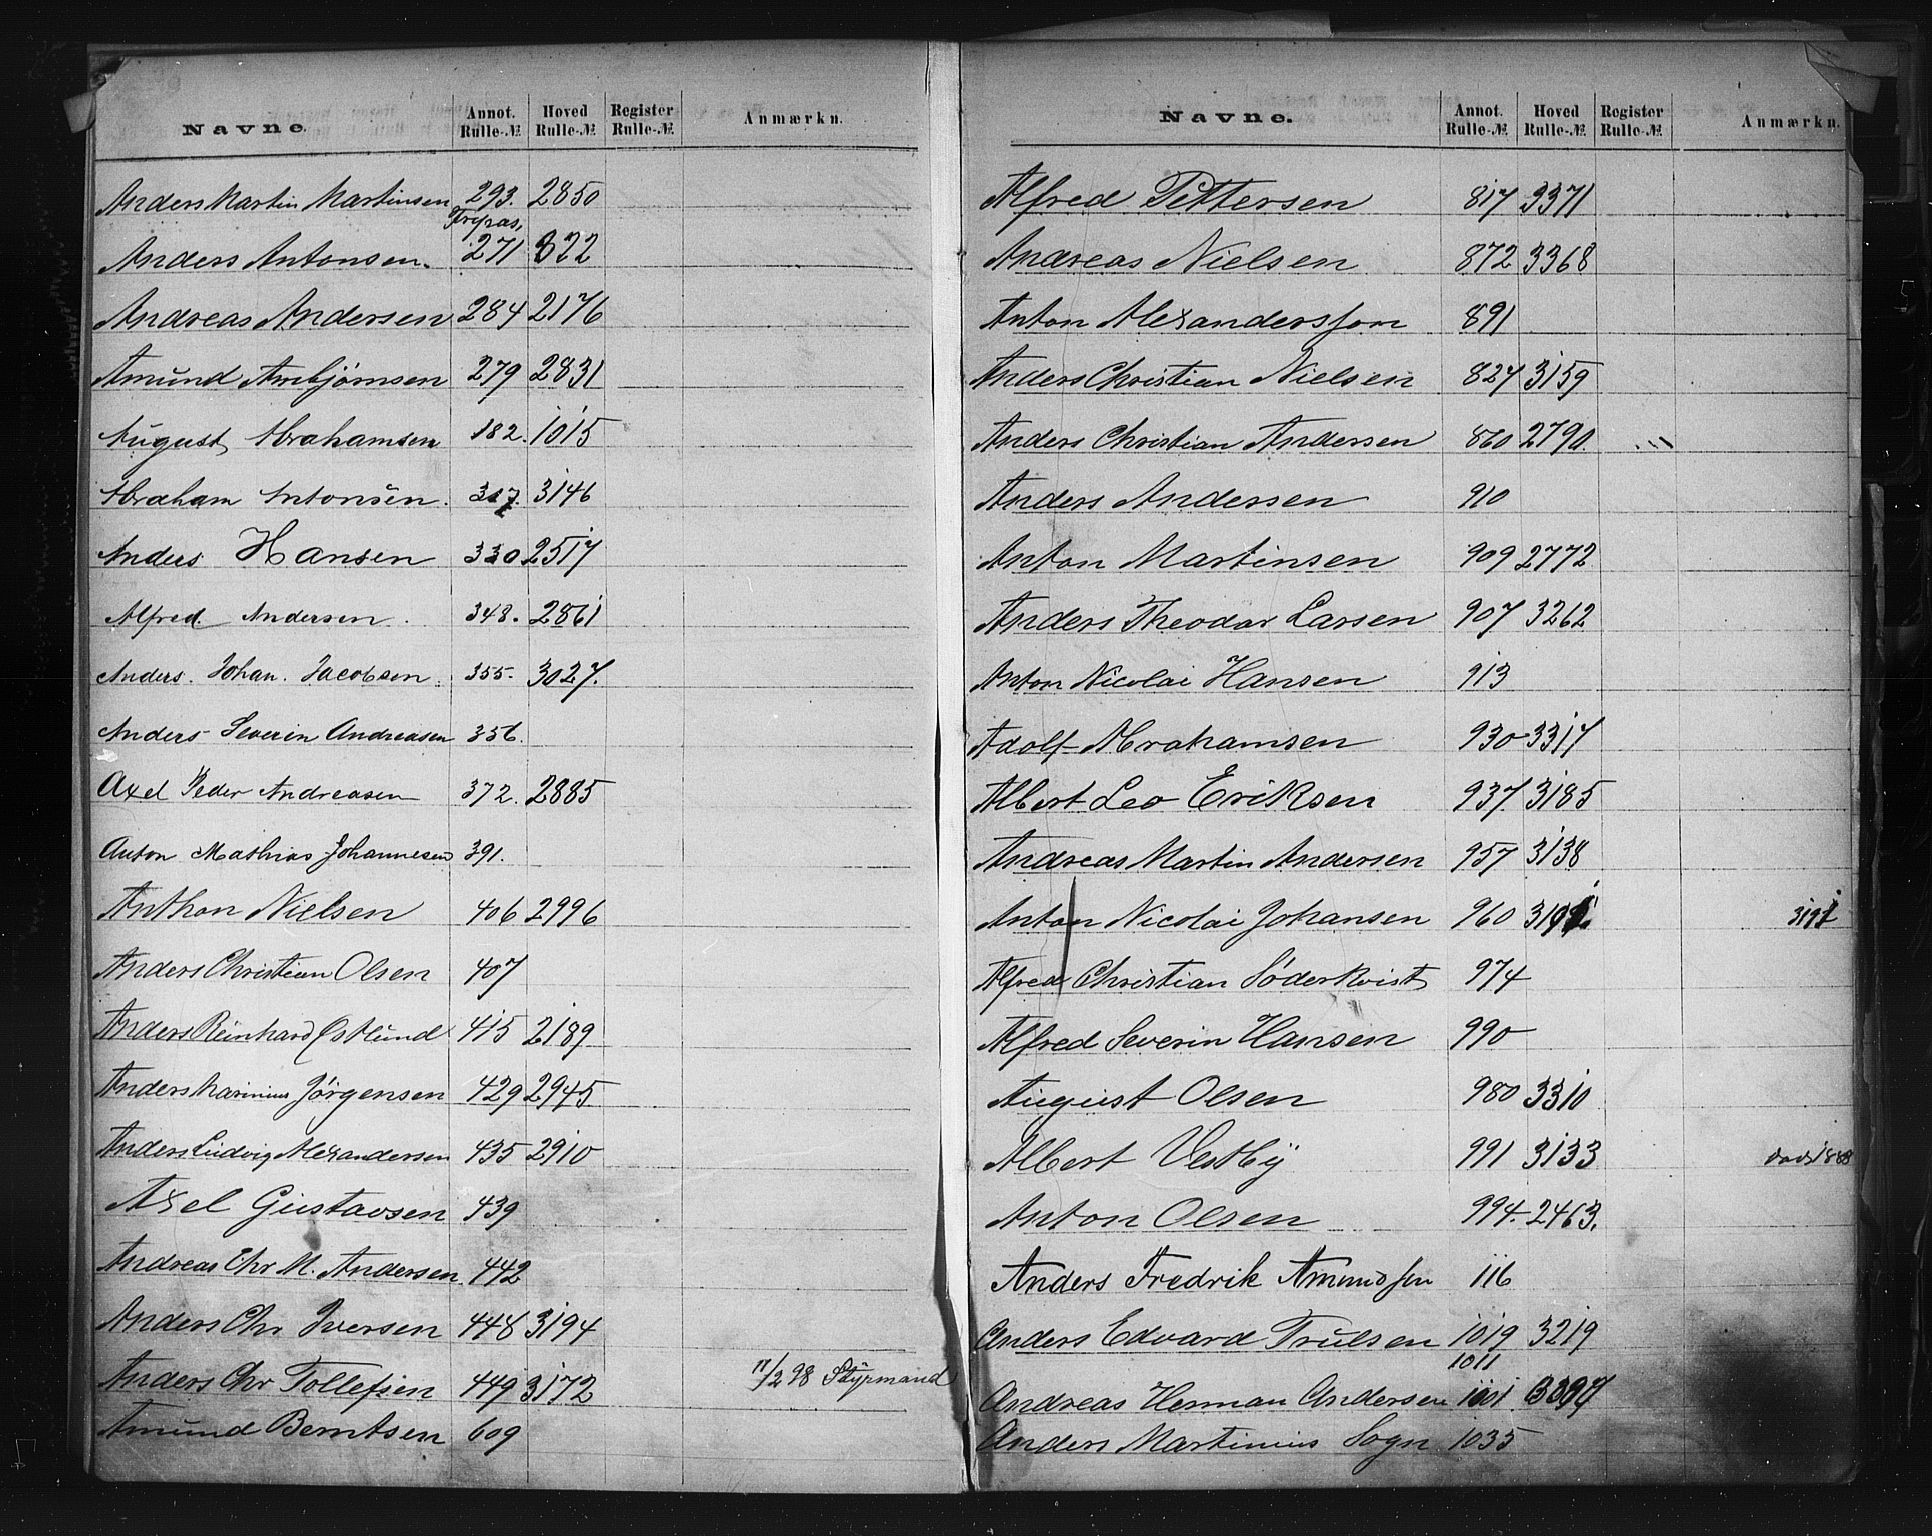 Navne. Annot. Rulle-№ Hoved Rulle-№ Register Rulle-№ Anmærkn.
Anders Martin Martinsen 293. 2850
Anders Antonsen. 271 822
Andreas Andersen 284 2176
Amund Arnbjørnsen 279 2831
August Abrahamsen 182. 1015
Abraham Antonsen. 3146
Anders Hansen 330 2517
Alfred Andersen. 348. 2861
Anders. Johan. Jacobsen. 355. 3027.
Anders Severin Andreasen 356.
Axel Peder Andreasen 372. 2885
Anton Mathias Johannesen 391.
Anthon Nielsen 406 2996
Anders Christian Olsen 407
Anders Reinhard Østlund 415 2189
Anders Marinius Jørgensen 429 2945
Anders Ludvig Alexandersen 435 2910
Axel Gustavsen 439
Andreas Chr M. Andersen 442
Anders Chr Iversen 448 3194
Anders Chr Tollefsen 449 3172 17/2 98 Styrmand
Amund Berntsen 609
Navne. Annot. Rulle-№ Hoved Rulle-№ Register Rulle-№ Anmærkn.
Alfred Pettersen 817 3371
Andreas Nielsen 872 3368
Anton Alexandersson 891
Anders Christian Nielsen 824 3159
Anders Christian Andersen 860 2790.
Anders Andersen 910
Anton Martinsen 909 2772
Anders Theodor Larsen 907 3262
Anton Nicolai Hansen 913
Adolf Abrahamsen 930 3317
Albert Leo Eriksen 937. 3185
Andreas Martin Andersen 957 3138
Anton Nicolai Johansen 960 3191
Alfred Christian Söderkvist 974
Alfred Severin Hansen 990
August Olsen 980 3310
Albert Vestby 991 3133 1888
Anton Olsen 994. 2463.
Anders Fredrik Amundsen 116
Anders Edvard Trulsen 1019 3219
1011
Andreas Herman Andersen
Anders Martinius Sogn 1035